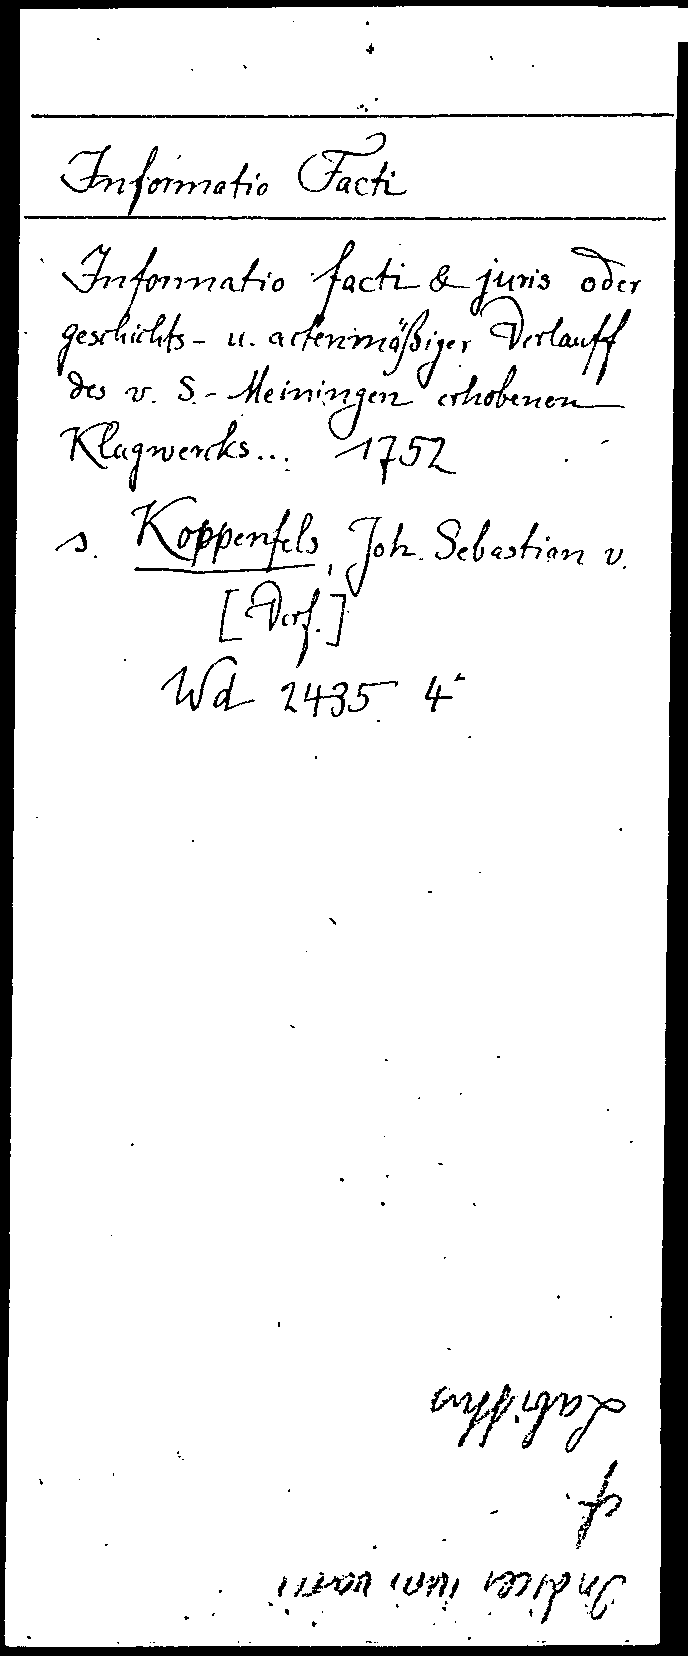 Informatio Facti
Informatio facti & juris oder
geschichts- u. actenmäßiger Verlauff
des v. S.-Meiningen erhobenen
Klagwercks... 1752
s. Koppenfels, Joh. Sebastian v.
[Verf.]
Wd 2435 4°
Indices
cf.